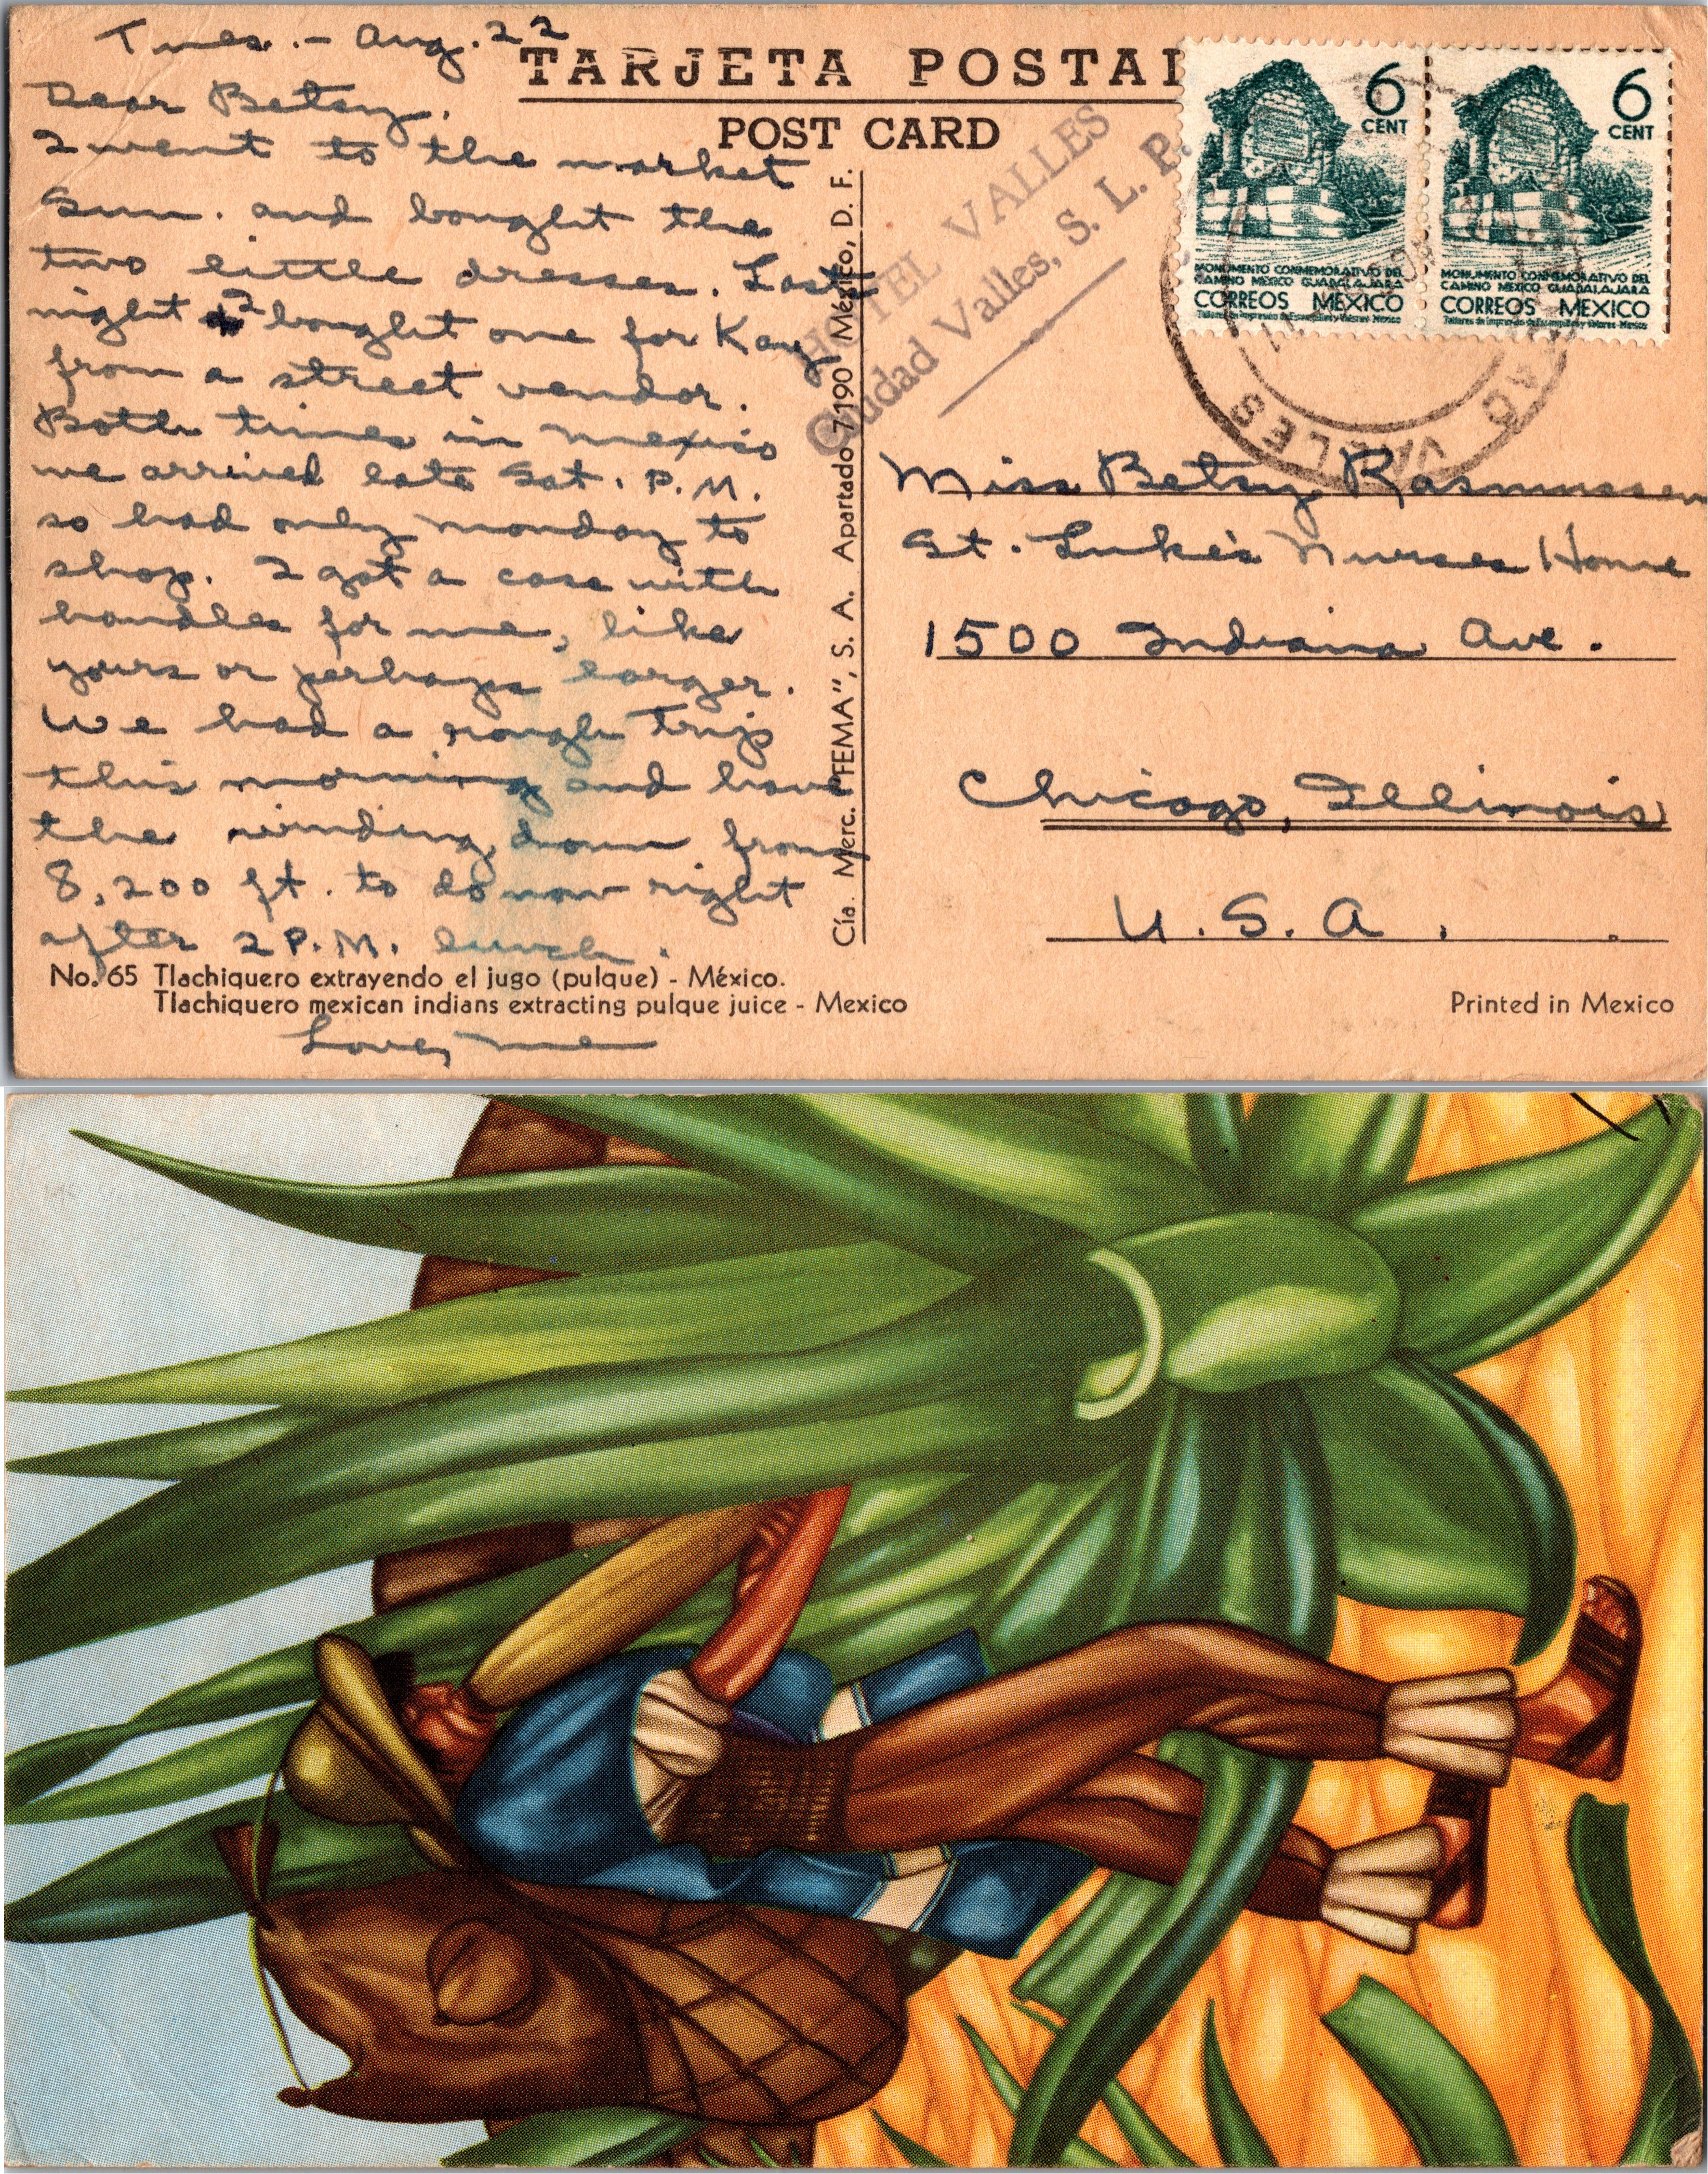 Tues. - Aug. 22
Dear Betsy,
I went to the market
Sun. and bought the
two little dresses. Last
night I bought one for Kay
from a street vendor.
Both times in Mexico
we arrived late Sat. P.M.
so had only Monday to
shop. I got a case with
handles for me, like
yours or perhaps larger.
We had a rough trip
this morning and have
the winding down from
8,200 ft. to do now right
after 2 P.M. lunch.
Love, me
No. 65 Tlachiquero extrayendo el jugo (pulque) - México.
Tlachiquero mexican indians extracting pulque juice - Mexico
TARJETA POSTAL
POST CARD
Cía. Merc. "FEMA", S. A. Apartado 7190 México, D. F.
HOTEL VALLES
Ciudad Valles, S. L. P.
6
CENT
MONUMENTO CONMEMORATIVO DEL
CAMINO MEXICO GUADALAJARA
CORREOS MEXICO
Talleres de Impresión de Estampillas y Valores-Mexico
6
CENT
MONUMENTO CONMEMORATIVO DEL
CAMINO MEXICO GUADALAJARA
CORREOS MEXICO
Talleres de Impresión de Estampillas y Valores-Mexico
VALLES
Miss Betsy Rasmussen
St. Luke's Nurses Home
1500 Indiana Ave.
Chicago, Illinois
U. S. A.
Printed in Mexico